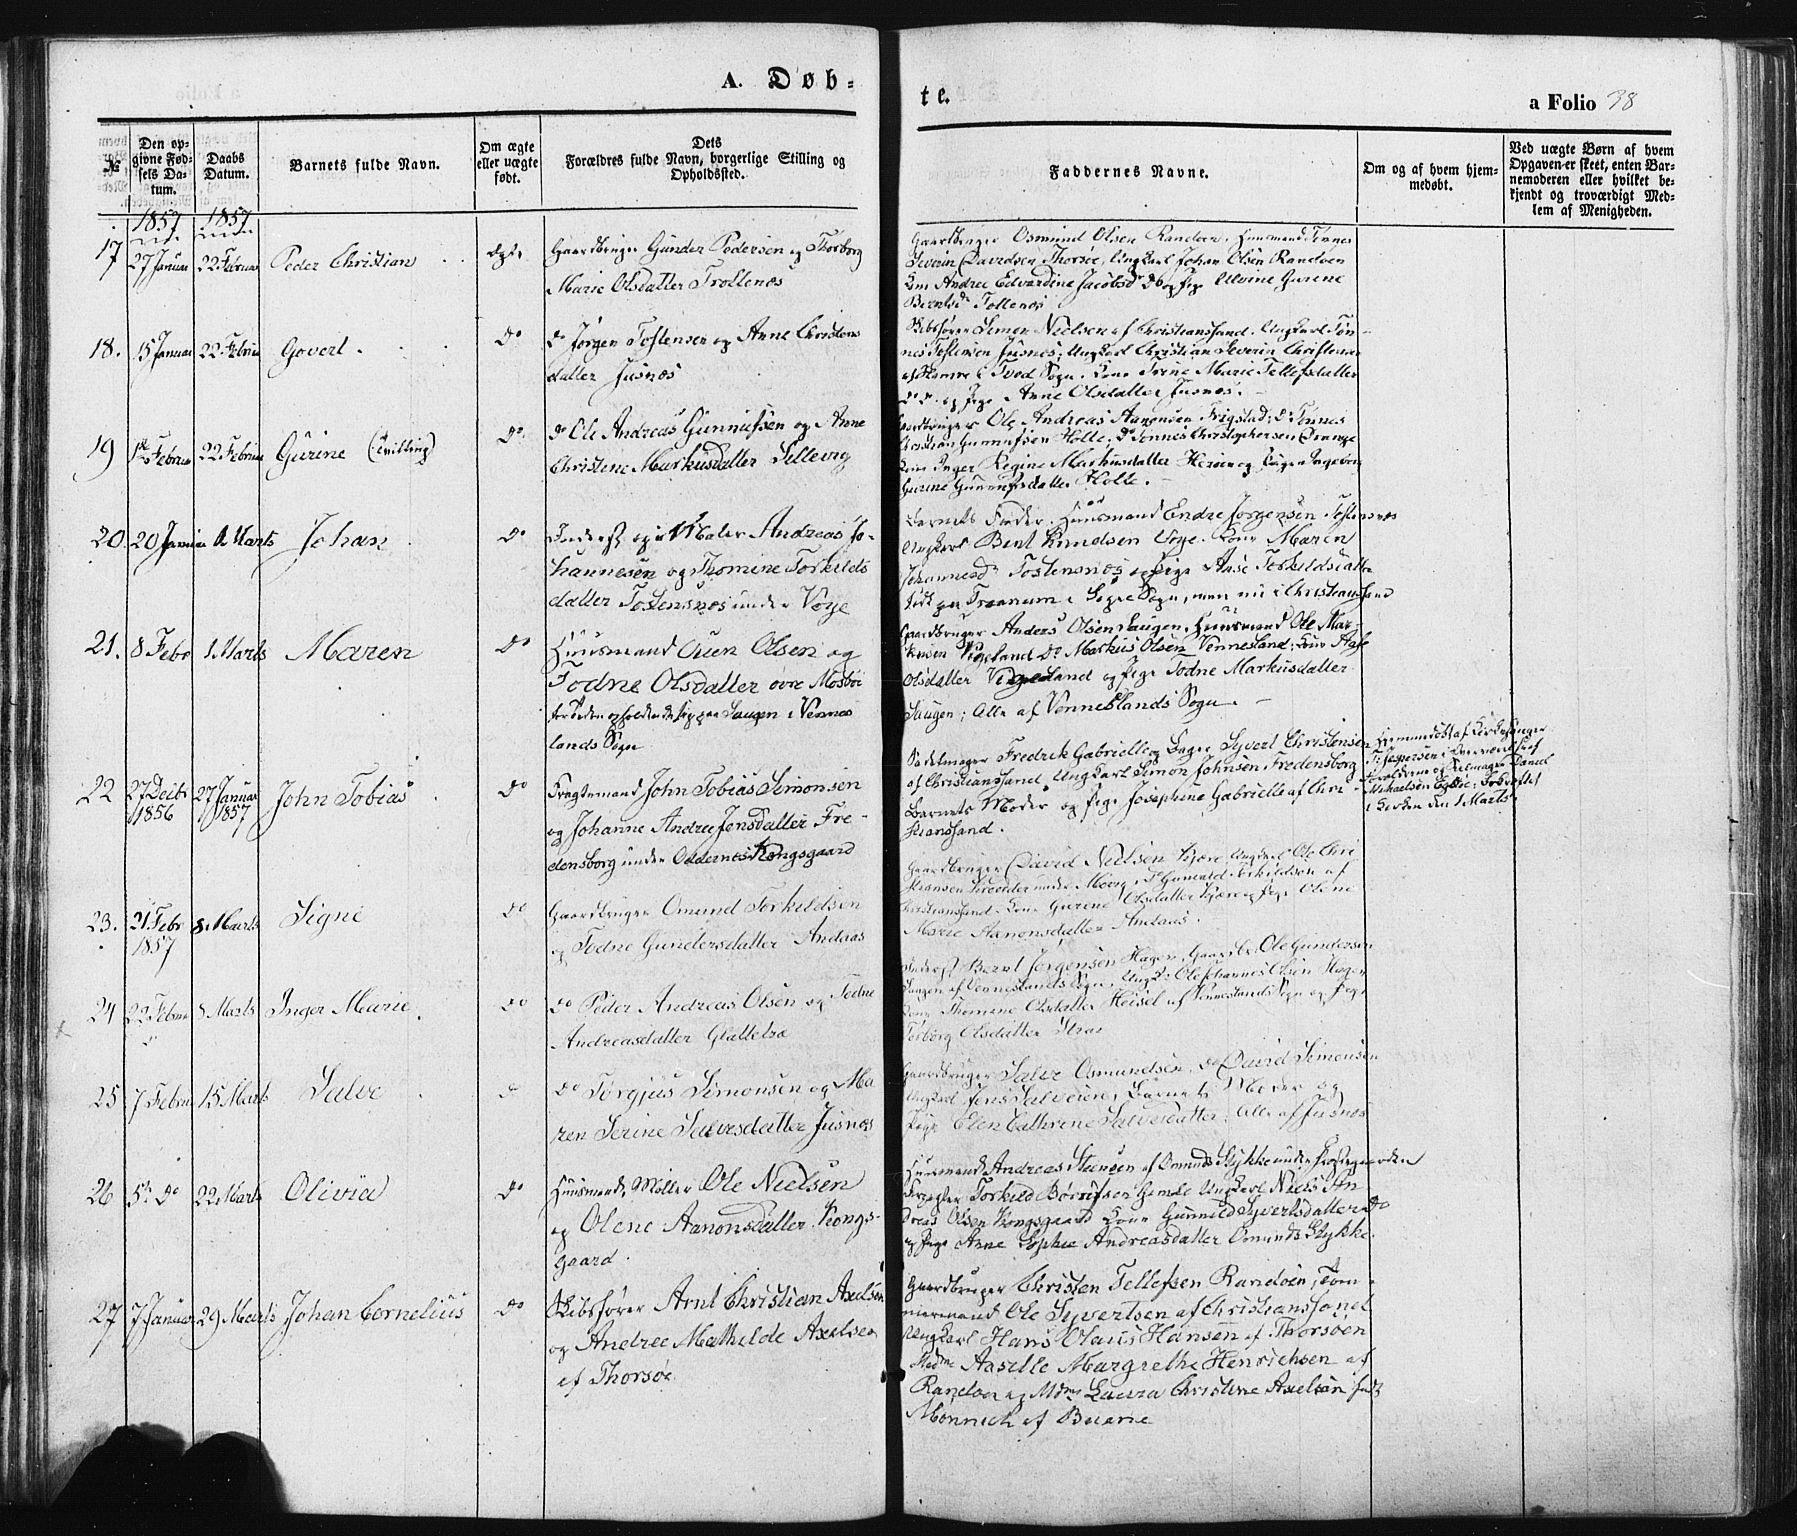 A. Døb-
te.
a Folio 38
№
Den op-
givne Fød-
sels Da-
tum.
Daabs
Datum.
Barnets fulde Navn.
Om ægte
eller uægte
født.
Dets
Forældres fulde Navn, borgerlige Stilling og
Opholdssted.
Faddernes Navne.
Om og af hvem hjem-
medøbt.
Ved uægte Børn af hvem
Opgaven er skeet, enten Bar-
nemoderen eller hvilket be-
kjendt og troværdigt Med-
lem af Menigheden.
1857 1857
17 27 Januar 22 Februar Peder Christian Ægte
Gaardbruger Gunder Pedersen og Thorborg
Marie Olsdatter Trollenæs
Gaardbruger Osmund Olsen Randøen, Huusmand Tønnes
Severin Davidsen Thorsøe, Ungkarl Johan Olsen Randøen
Kone Andrea Edvardine Jacobsd Do og Pige Elevine Gurene
Berntsd Tollenæs
18. 15 Januar 22 Februar Govert Do
Do Jørgen Tostensen og Anne Christens
datter Jusnæs
Skibsfører Simon Nielsen af Christianssand. Ungkarl Tøn-
nes Tostensen Jusnæs, Ungkarl Christian Severin Christensen
af Hamre i Tved Sogn. Kone Trine Marie Tellefsdatter
Do Do og Pige Anne Olsdatter Jusnæs.
19 1ste Februar 22 Februar Gurine (Tvilling) Do
Do Ole Andreas Gunnufsen og Anne
Christine Markusdatter Sellevig
Gaardbruger Ole Andreas Aanonsen Frigstad, Do Tønnes
Christian Gunnufsen Holte, Do Tønnes Christophersen Drange
Kone Inger Regine Markusdatter Herøen og Pigen Ingeborg
Gurine Gunnufsdatter Holte.
20. 20 Januar 1 Marts Johan Do
Inderst og Maler Andreas Jo-
hannesen og Thomine Torkilds
datter Tostensnæs under Voje
Barnets Fader. Huusmand Endre Jørgensen Tostensnæs
Ungkarl Bent Knudsen Voje. Kone Maren
Johannesd Tostensnæs og Pige Anse Torkildsdatter
født paa Traanum i Søgne Sogn, men nu i Christianssand
21. 8 Febr 1 Marts Maren Do
Huusmand Ouen Olsen og
Todne Olsdatter øvre Mosbøe
for Tiden opholdende sig paa Haugen i Vennes
lands Sogn
Gaardbruger Anders Olsen Haugen, Huusmand Ole Mar-
kusen Vigeland Do Markus Olsen Vennesland, Kone Aase
Olsdatter Vigeland og Pige Todne Markusdatter
Haugen; Alle af Venneslands Sogn.
22 27 Decbr 27 Januar John Tobias Do
1856 1857
Fragtemand John Tobias Simonsen
og Johanne Andrea Jensdatter Fre-
densborg under Oddernes Kongsgaard
Sadelmager Fredrik Gabrielle og Bager Syvert Christensen
af Christianssand Ungkarl Simon Johnsen Fredensborg
Barnets Moder og Pige Josephine Gabrielle af Chri-
stianssand.
Hjemmedøbt af Kirkesanger
T. Jespersen i Overværelse af
Forældrene og Daniel
Mikaelsen; Fremstillet
i Kirken den 1 Marts
23. 21 Febr 8 Marts Signe Do
1857
Gaardbruger Omund Torkildsen
og Todne Gundersdatter Andaas
Gaardbruger David Nielsen Kjære, Ungkarl Ole Chri
stiansen under Moseg, Do Gunvald Torkildsen af
Christianssand. Kone Gurine Olsdatter Kjære og Pige Olene
Marie Aanonsdatter Andaas.
24 22 Februar 8 Marts Inger Marie Do
Do Peder Andreas Olsen og Todne
Andreasdatter Glattetræ
Inderst Bernt Jørgensen Hagen, Gaardbr Ole Gundersen
Haugen af Venneslands Sogn, Ungk: Ole Johannes Olsen Hagen
Kone Thomine Olsdatter Heisel af Venneslands Sogn og Pige
Torborg Olsdatter Strai
25 7 Februar 15 Marts Salve Do
Do Torgjus Simonsen og Ma
ren Serine Salvesdatter Jusnæs
Gaardbruger Salve Osmundsen, Do David Simonsen
Ungkarl Jens Salvesen, Barnets Moder og
Pige Elen Cathrine Salvesdatter. Alle af Jusnæs
26 5te Do 22 Marts Olivia Do
Huusmand, Møller Ole Nielsen
og Olene Aanonsdatter Kongs-
gaard.
Huusmand Andreas Steensen af Omunds Stykke under Prestegaarden
Torkild Børufsen Gemle Ungkarl Niels An
dreas Olsen Kongsgaard Kone Gunnild Syvertsdatter Do
og Pige Anne Sophie Andreasdatter Omunds Stykke.
27 7 Januar 29 Marts Johan Cornelius Do
Skibsfører Arnt Christian Axelsen
og Andrea Mathilde Axelsen
af Thorsøe
Gaardbruger Christen Tellefsen Randøen, Tøm-
mermand Ole Syvertsen af Christianssand
Ungkarl Hans Olaus Hansen af Thorsøen
Madme Aaselle Margrethe Henrichsen af
Randøen og Mdme Laura Christine Axelsen født
Mønnich af Buarne